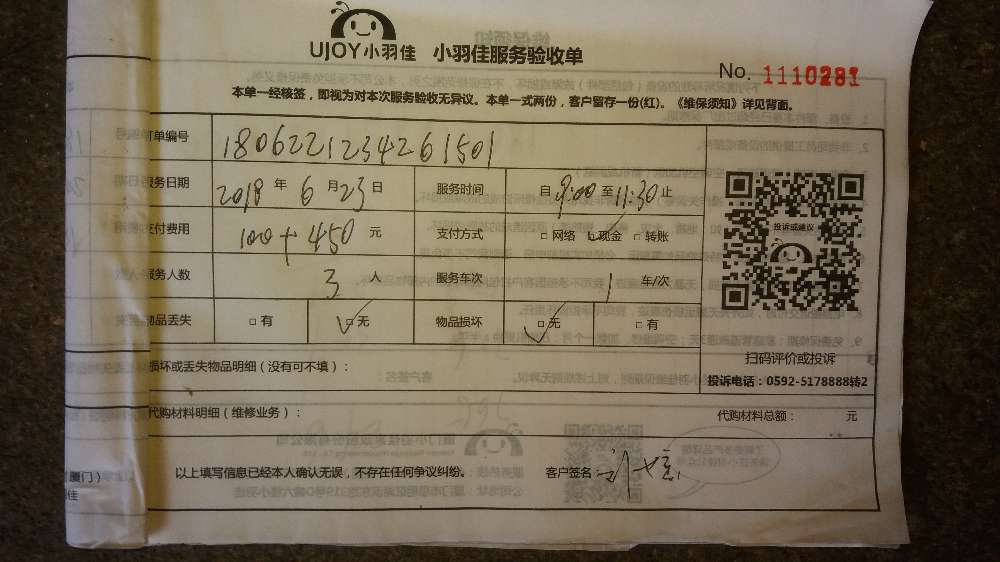 UJOY小羽佳 小羽佳服务验收单
No. 1110281
本单一经核签，即视为对本次服务验收无异议。本单一式两份，客户留存一份(红)。《维保须知》详见背面。
订单编号 180622123426 1501
服务日期 2018 年 6 月 23 日 服务时间 自 9:00 至 11:30 止
支付费用 100+450 元 支付方式 □ 网络 ☑ 现金 □ 转账
服务人数 3 人 服务车次 1 车/次
物品丢失 □ 有 ☑ 无 物品损坏 ☑ 无 □ 有
投诉或建议
扫码评价或投诉
投诉电话：0592-5178888转2
损坏或丢失物品明细（没有可不填）：
代购材料明细（维修业务）： 代购材料总额： 元
以上填写信息已经本人确认无误，不存在任何争议纠纷。 客户签名
厦门）
佳